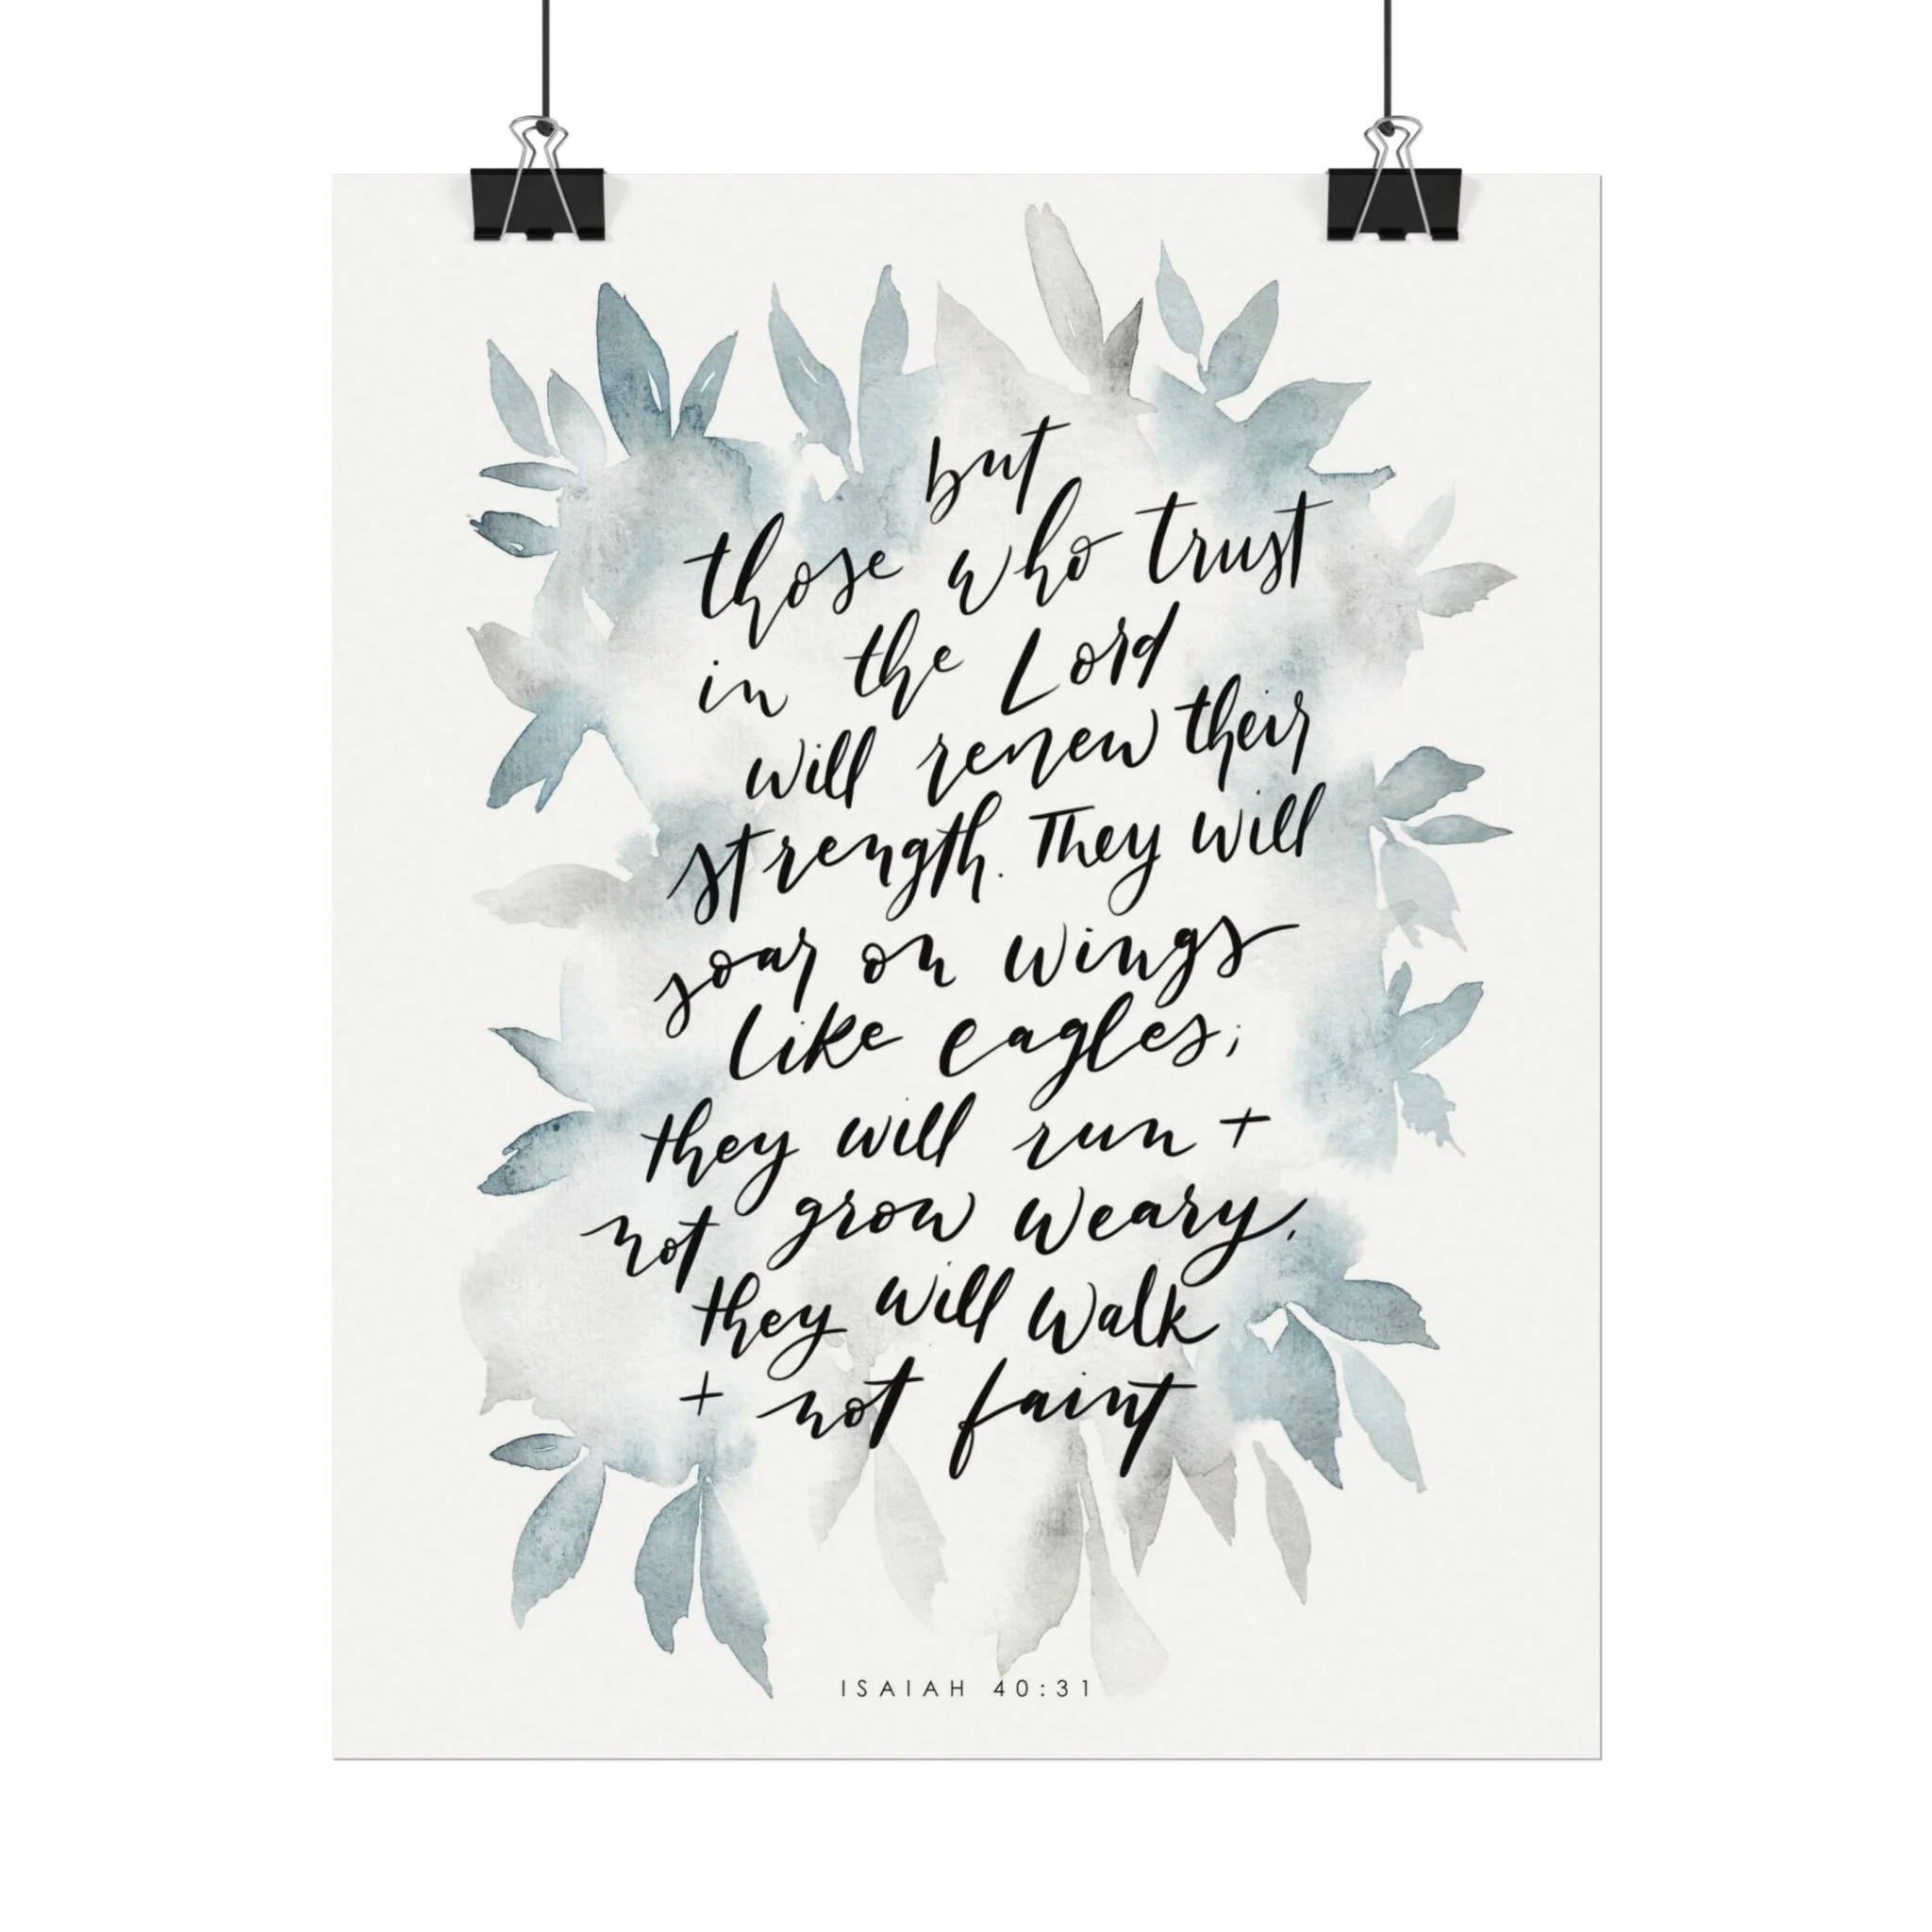 but
those who trust
in the Lord
will renew their
strength. They will
soar on wings
like eagles;
they will run +
not grow weary,
they will walk
+ not faint
ISAIAH 40:31